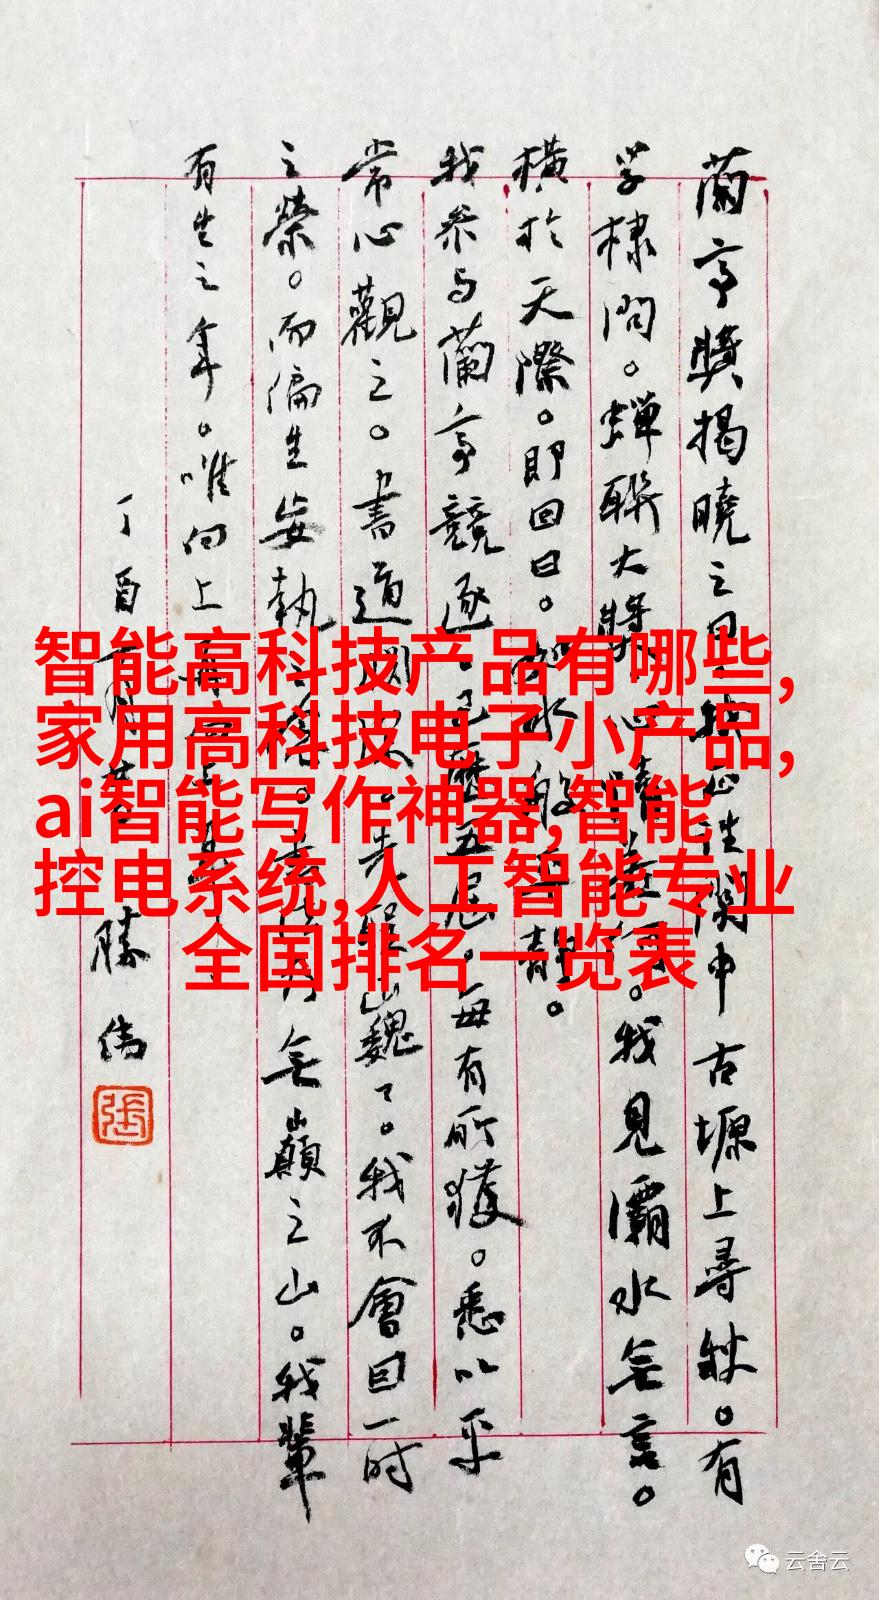 蘭亭獎揭曉之 正 關中古塬上尋秋。有
學棣問。蟬聯大獎 心情 。我見灞水無言。
橫於天際。即回曰。如水般平靜。
我参与蘭亭競逐。已歷五屆。每有所獲。悉以平
常心觀之。書道 。我不會因一時
之榮。而偏生妄執 無巔之山。我輩
有生之年。唯向上
丁酉 勝偉
張
智能高科技产品有哪些,
家用高科技电子小产品,
ai智能写作神器,智能
控电系统,人工智能专业
全国排名一览表
云舍云